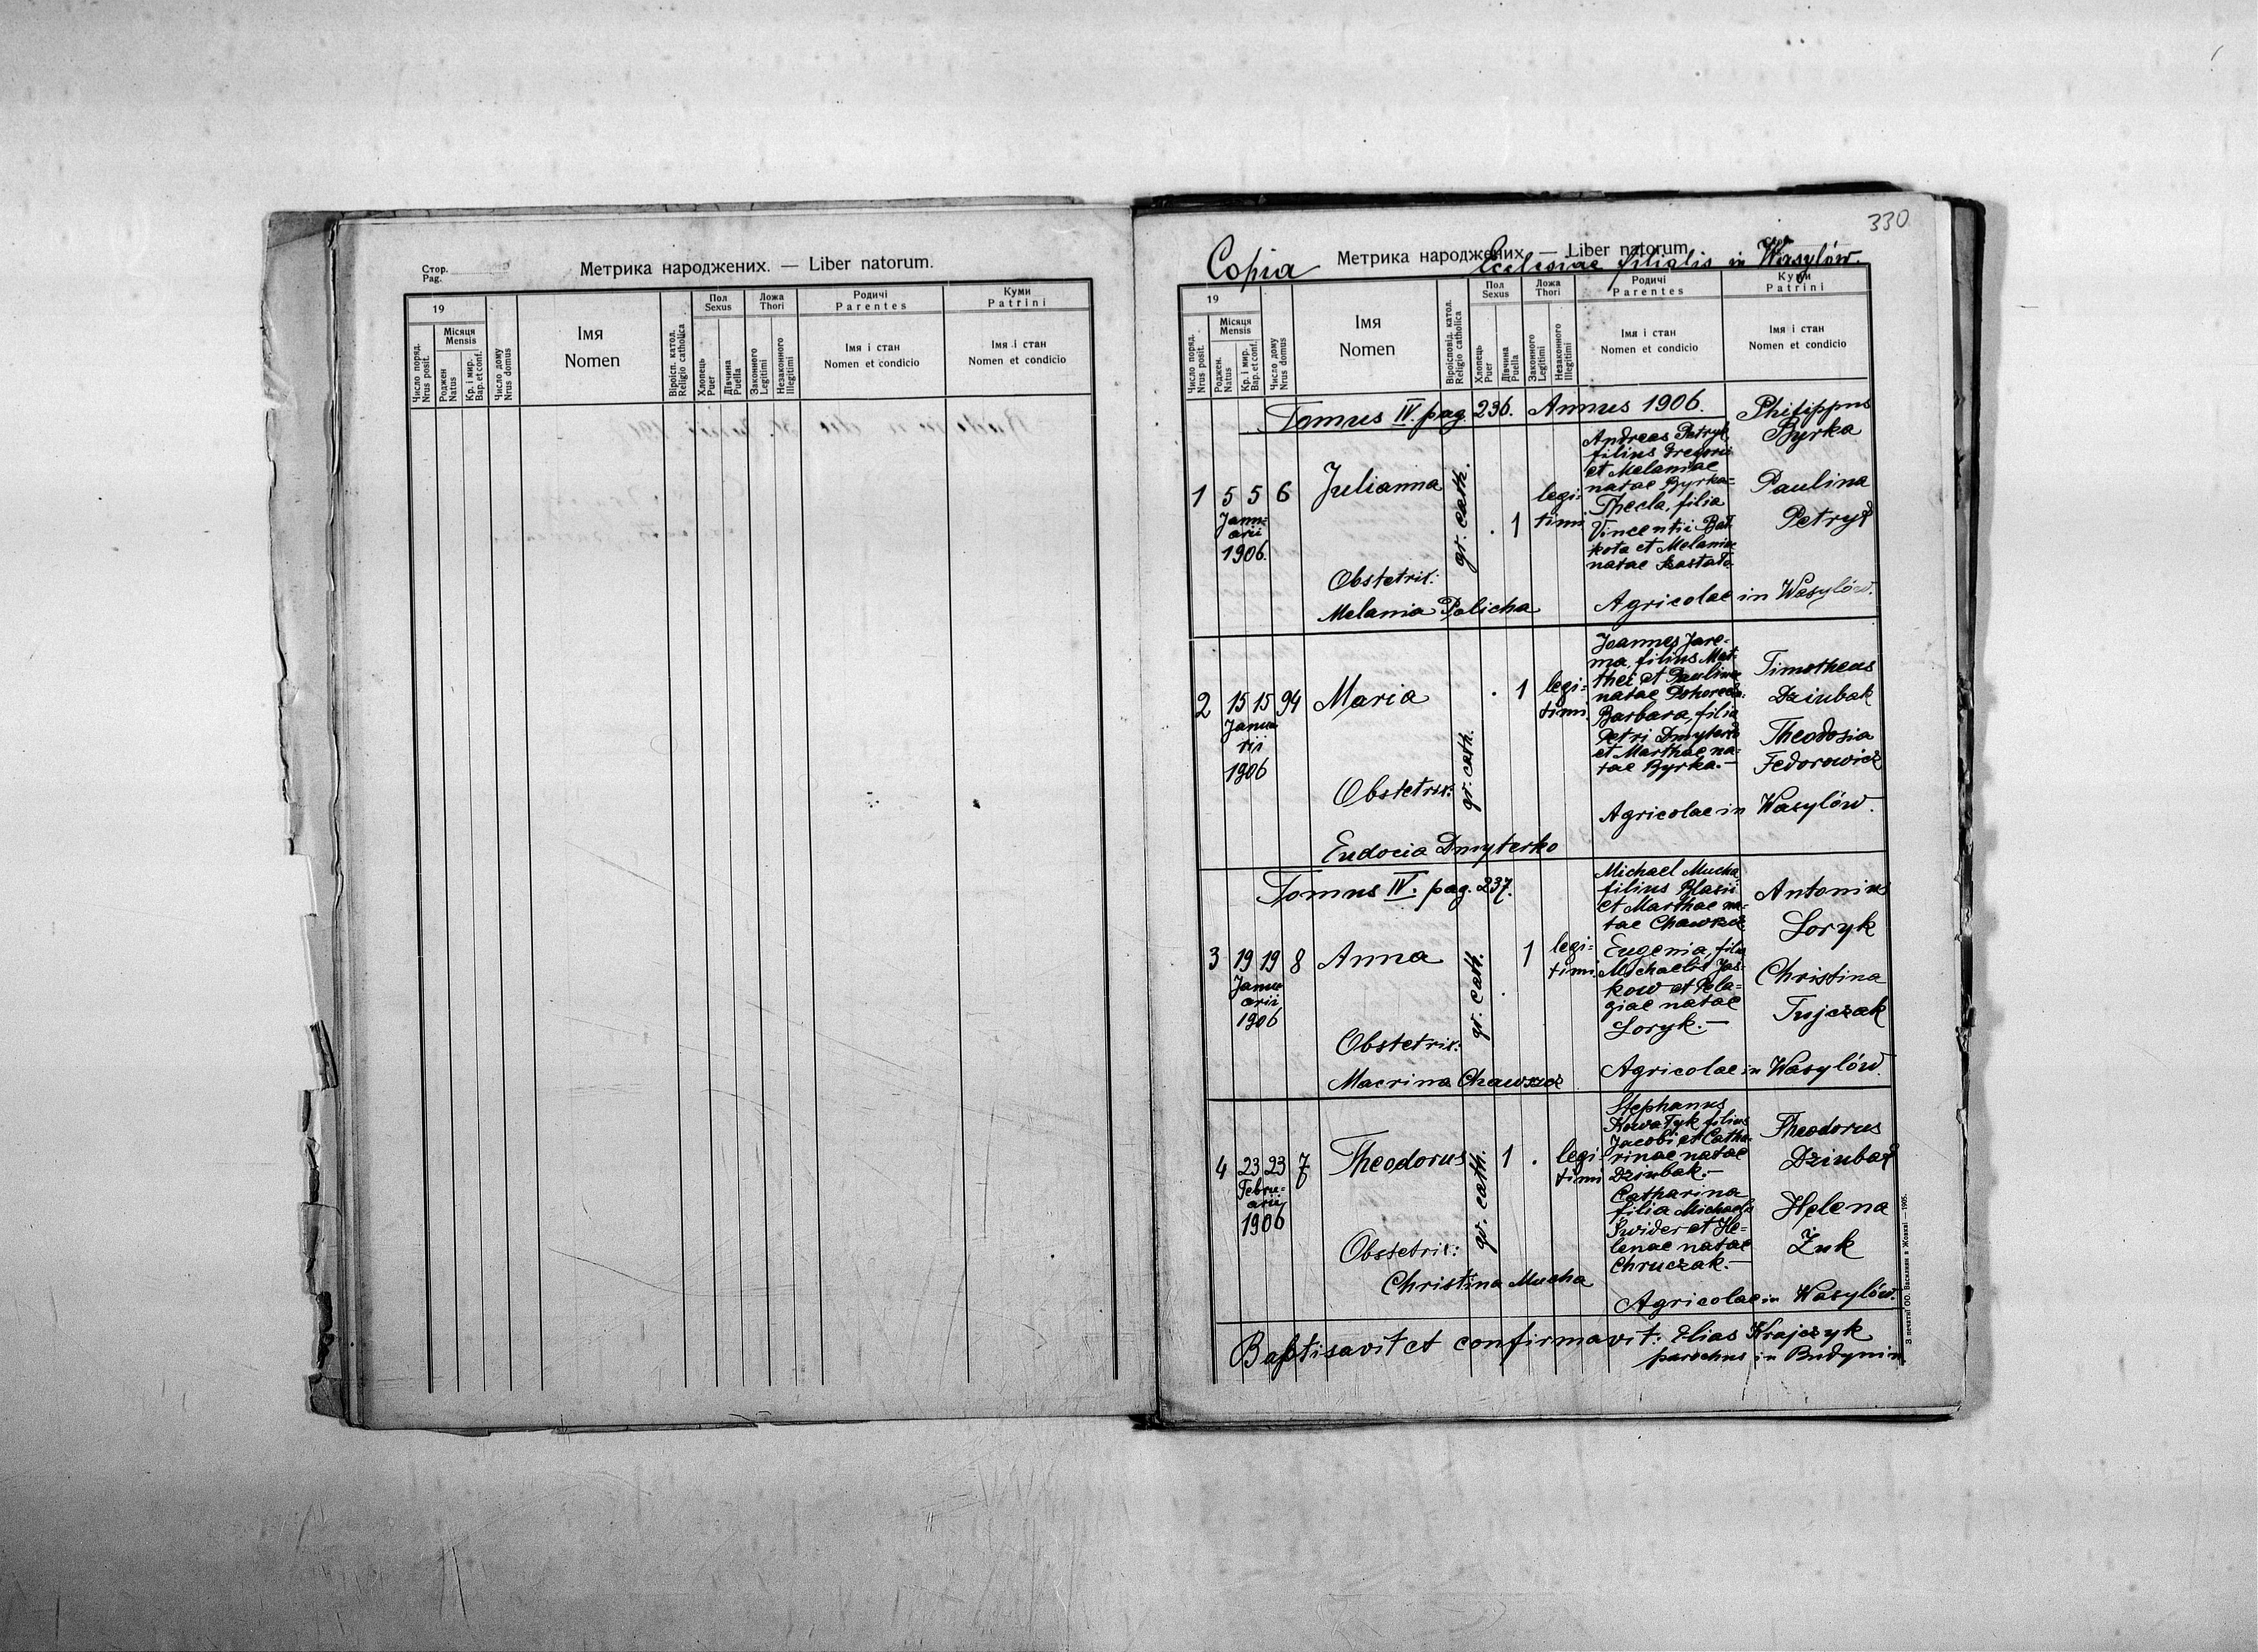 Стор.
Pag.
Метрика народжених. — Liber natorum.
19
Число поряд.
Nrus posit.
Місяця
Mensis
Роджен
Natus
Кр. і мир.
Bap. et conf.
Число дому
Nrus domus
Імя
Nomen
Віроісп. катол.
Religio catholica
Пол
Sexus
Хлопець
Puer
Дівчина
Puella
Ложа
Thori
Законного
Legitimi
Незаконного
Illegitimi
Родичі
Parentes
Імя і стан
Nomen et condicio
Куми
Patrini
Імя і стан
Nomen et condicio
330
Copia
Метрика народжених. — Liber natorum.
Ecclesiae filialis in Wasylów.
19
Число поряд.
Nrus posit.
Місяця
Mensis
Роджен.
Natus
Кр. і мир.
Bap. et conf.
Число дому
Nrus domus
Імя
Nomen
Віроісповід. катол.
Religio catholica
Пол
Sexus
Хлопець
Puer
Дівчина
Puella
Ложа
Thori
Законного
Legitimi
Незаконного
Illegitimi
Родичі
Parentes
Імя і стан
Nomen et condicio
Куми
Patrini
Імя і стан
Nomen et condicio
Tomus IV. pag. 236. Annus 1906.
1 5 5 6
Janu=
arii
1906.
Julianna
gr. cath.
. 1
legi=
timi
Andreas Petryk
filius Gregorii
et Melaniae
natae Byrka=
Thecla, filia
Vincentii Bał
kota et Melaniae
natae
Philippus
Byrka
Paulina
Petryk
Obstetrix:
Melania Policha
Agricolae in Wasylów.
2 15 15 94
Janua
rii
1906
Maria
gr. cath.
. 1
legi=
timi
Joannes Jare-
ma, filius Mat-
thei et Paulinae
natae
Barbara, filia
Petri Dmyterko
et Marthae na-
tae Byrka.—
Timotheus
Dziubak
Theodosia
Fedorowicz
Obstetrix:
Eudocia Dmyterko
Agricolae in Wasylów.
Tomus IV. pag. 237.
3 19 19 8
Janu
arii
1906
Anna
gr. cath.
. 1
legi=
timi
Michael Mucha,
filius Blasii
et Marthae na-
tae
Eugenia, filia
Michaelis Jas-
kow et Pela=
giae natae
Loryk.—
Antonius
Loryk
Christina
Tujczak
Obstetrix:
Macrina
Agricolae in Wasylów.
4 23 23 7
Febru=
arii
1906
Theodorus
gr. cath.
1 .
legi=
timi
Stephanus
Kowałyk, filius
Jacobi et Catha-
rinae natae
Dziubak.—
Catharina
filia Michaelis
Swider et He=
lenae natae
Chruczak.—
Theodorus
Dziubak
Helena
Żuk
Obstetrix:
Christina Mucha
Agricolae in Wasylów.
Baptisavit et confirmavit: Elias Krajczyk
parochus in Budynin
З печатні ОО. Василиян в Жовкві — 1905.